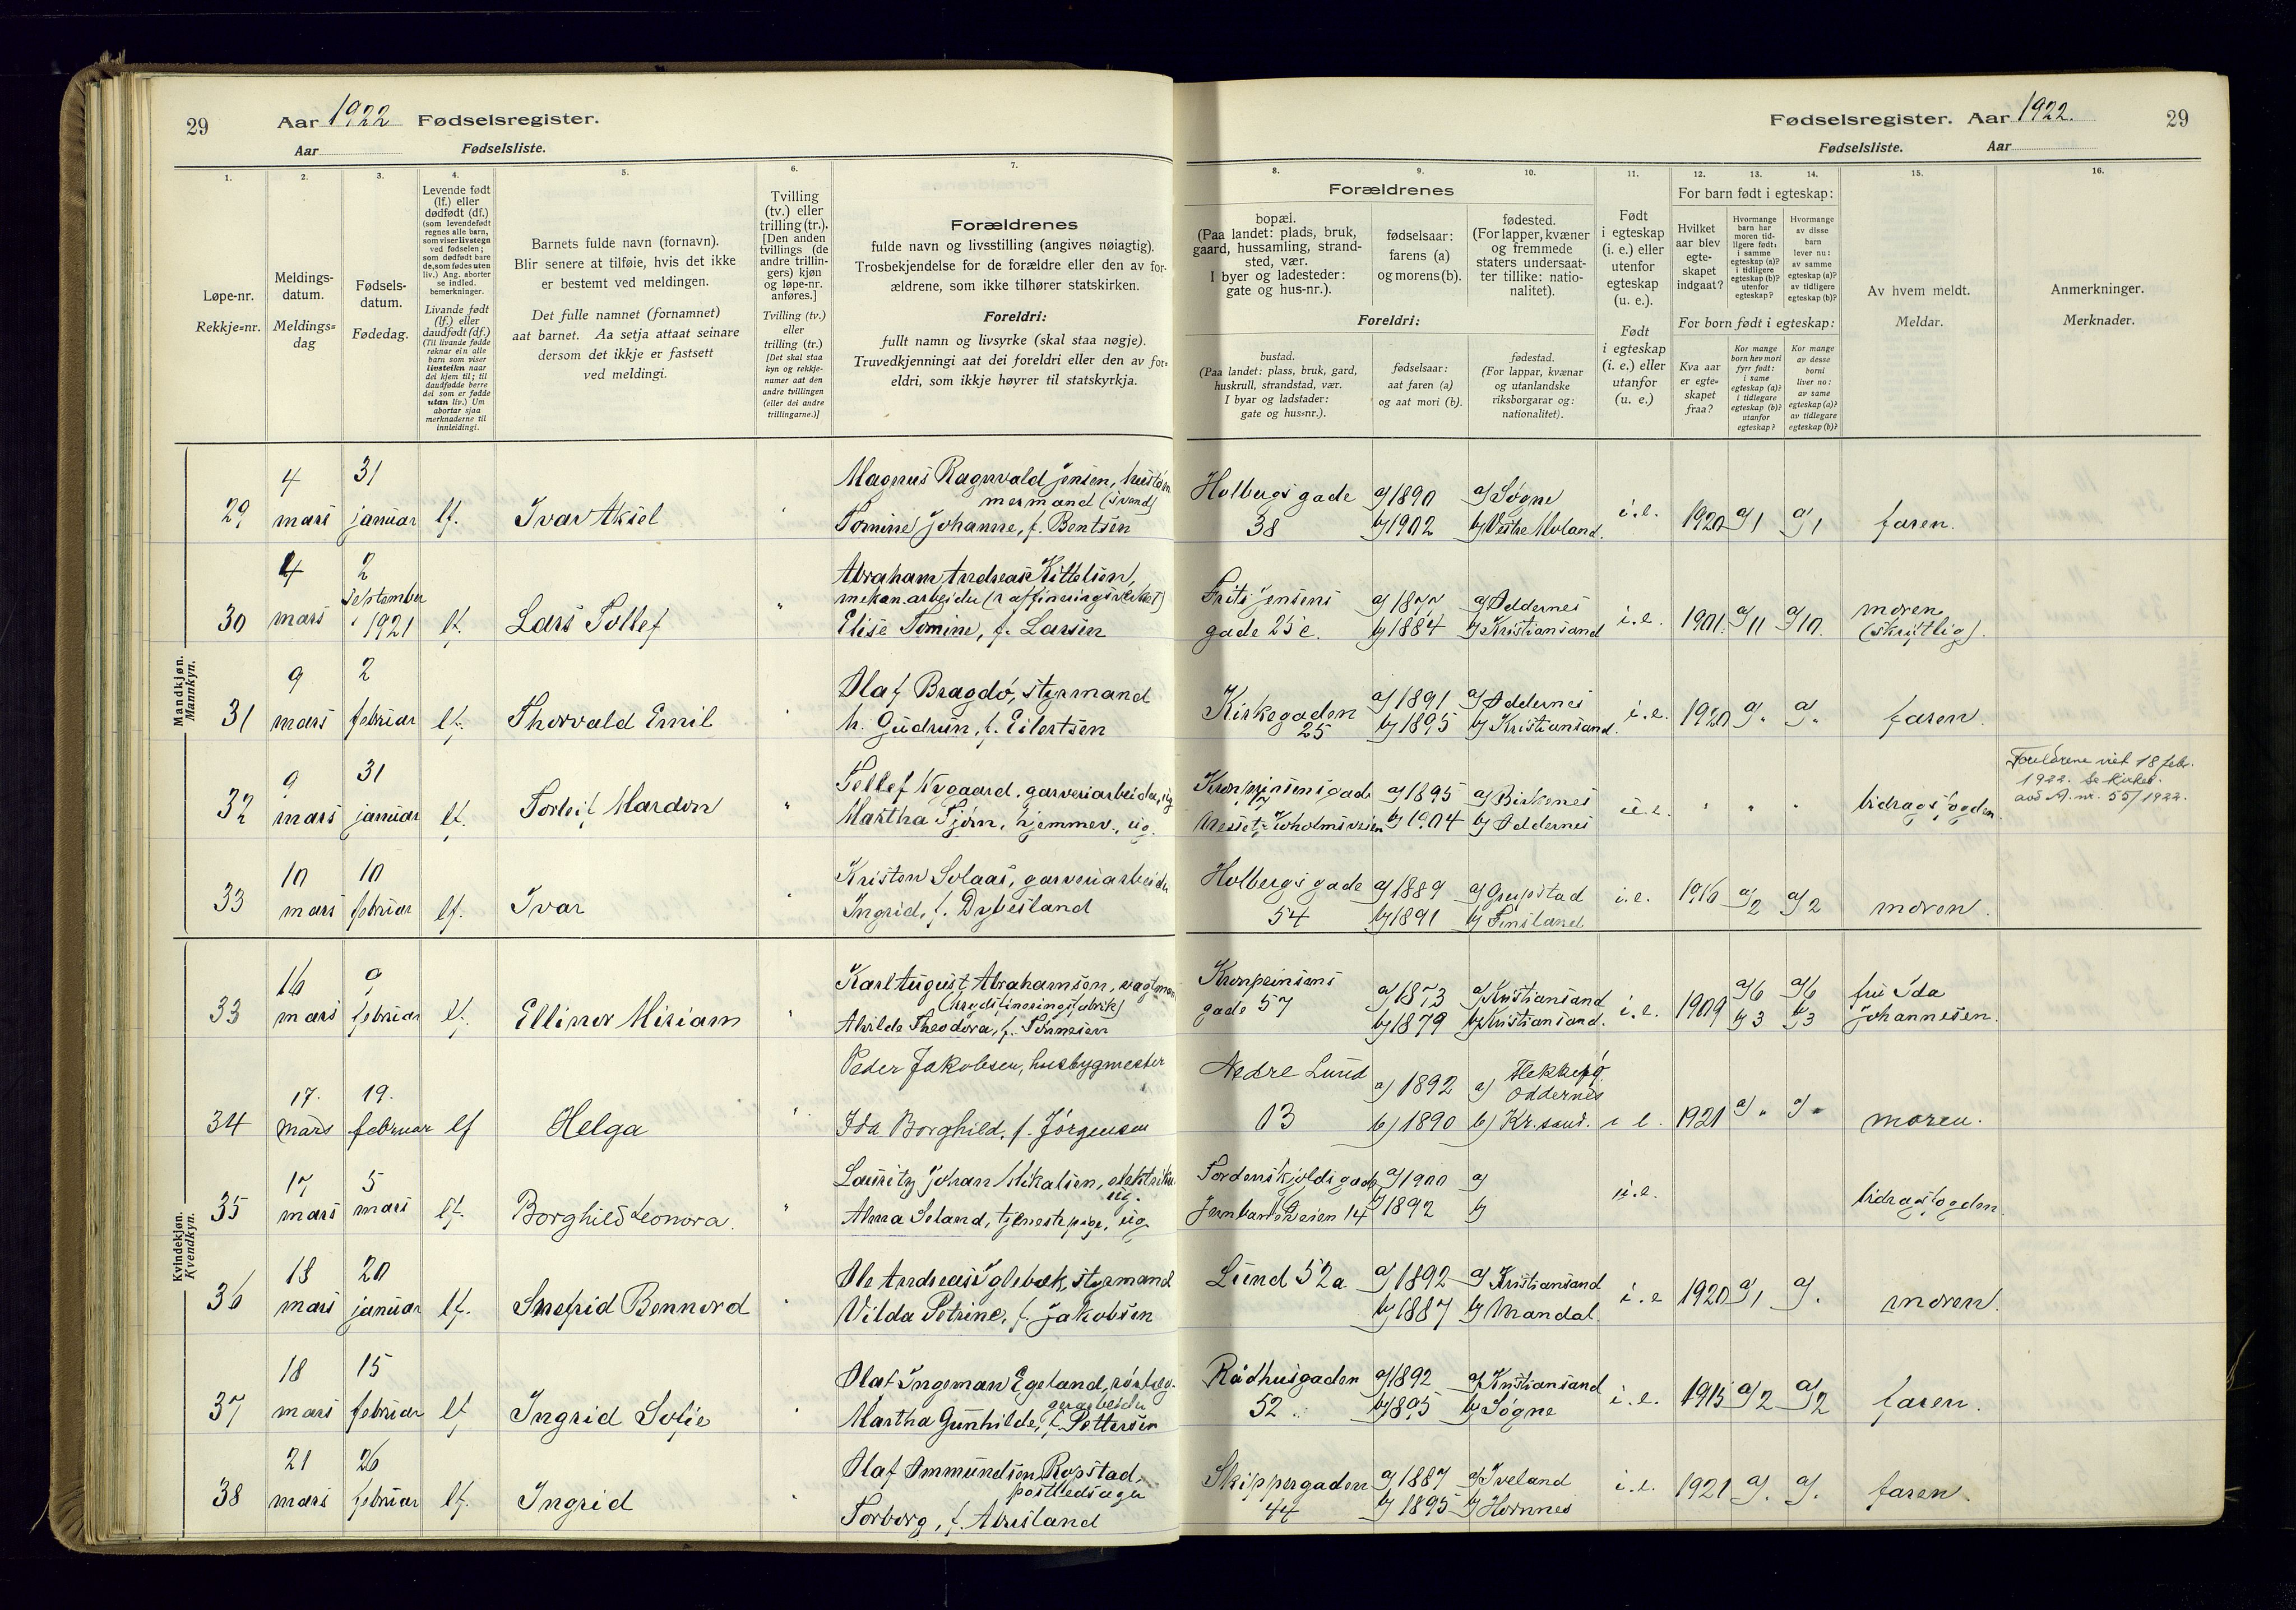 29
Aar 1922 Fødselsregister.
Aar Fødselsliste.
1.
2.
3.
4.
5.
6.
7.
Løpe-nr.
Rekkje-nr.
Meldings-
datum.
Meldings-
dag
Fødsels-
datum.
Fødedag.
Levende født
(lf.) eller
dødfødt (df.)
(som levendefødt
regnes alle barn,
som viser livstegn
ved fødselen;
som dødfødt bare
de, som fødes uten
liv.) Ang. aborter
se indled.
bemerkninger.
Livande født
(lf.) eller
daudfødt (df.)
(Til livande fødde
reknar ein alle
barn som viser
livsteikn naar
dei kjem til; til
daudfødde berre
dei som er fødde
utan liv.) Um
abortar sjaa
merknaderne til
innleidingi.
Barnets fulde navn (fornavn).
Blir senere at tilføie, hvis det ikke
er bestemt ved meldingen.
Det fulle namnet (fornamnet)
aat barnet. Aa setja attaat seinare
dersom det ikkje er fastsett
ved meldingi.
Tvilling
(tv.) eller
trilling (tr.).
[Den anden
tvillings (de
andre trillin-
gers) kjøn
og løpe-nr.
anføres.]
Tvilling (tv.)
eller
trilling (tr.)
[Det skal staa
kyn og rekkje-
numer aat den
andre tvillingen
(eller dei andre
trillingarne.)]
Forældrenes
fulde navn og livsstilling (angives nøiagtig).
Trosbekjendelse for de forældre eller den av for-
ældrene, som ikke tilhører statskirken.
Foreldri:
fullt namn og livsyrke (skal staa nøgje).
Truvedkjenningi aat dei foreldri eller den av for-
eldri, som ikkje høyrer til statskyrkja.
Mandkjøn.
Mannkyn.
29 4 mars 31 januar lf. Ivar Aksel
Magnus Ragnvald Jensen,
(svend)
Tomine Johanne, f. Bentsen
30 4 mars 2 september 1921 lf. Lars Tollef
Abraham Andreas Kittelsen,
mekan. arbeider (raffineringsverket)
Elise Tomine, f. Larsen
31 9 mars 2 februar lf. Thorvald Emil
Olaf Bragdø, styrmand
h. Gudrun, f. Eilertsen
32 9 mars 31 januar lf. Torleif Mardon
Tellef Nygaard, garveriarbeider, ug
Martha Tjørn, hjemmev., ug.
33 10 mars 10 februar lf. Ivar
Kristen Solaas, garveriarbeider
Ingrid, f. Dybesland
Kvindekjøn.
Kvendkyn.
33 16 mars 9 februar lf. Ellinor Miriam
Karl August Abrahamson, vagtman
Alvilde Theodora, f. Tønnesen
34 17. mars 19. februar lf Helga
Peder Jakobsen, husbygmester
Ida Borghild, f. Jørgensen
35 17 mars 5 mars lf. Borghild Leonora.
Lauritz Johan Mikalsen, elektriker
ug.
Alma Seland, tjenestepige, ug.
36 18 mars 20 januar lf. Snefrid Bennord
Ole Andreas Uglebæk, styrmand
Vilda Petrine, f. Jakobsen
37 18 mars 15 februar lf Ingrid Sofie
Olaf Ingeman Egeland, rørlæg-
gerarbeider
Martha Gunhilde, f. Pettersen
38 21 mars 26 februar lf. Ingrid
Olaf Ommundsen Ropstad,
postledsager
Torborg, f. Abusland
Fødselsregister. Aar 1922.
29
Fødselsliste. Aar
8.
9.
10.
11.
12.
13.
14.
15.
16.
Forældrenes
bopæl.
(Paa landet: plads, bruk,
gaard, hussamling, strand-
sted, vær.
I byer og ladesteder:
gate og hus-nr.).
fødselsaar:
farens (a)
og morens (b).
fødested.
(For lapper, kvæner
og fremmede
staters undersaat-
ter tillike: natio-
nalitet).
Foreldri:
bustad.
(Paa landet: plass, bruk, gard,
huskrull, strandstad, vær.
I byar og ladstader:
gate og hus-nr.).
fødselsaar:
aat faren (a)
og aat mori (b).
fødestad.
(For lappar, kvænar
og utanlandske
riksborgarar og:
nationalitet).
Født
i egteskap
(i. e.) eller
utenfor
egteskap
(u. e.).
Født
i egteskap
(i. e.) eller
utanfor
(u. e.)
For barn født i egteskap:
Hvilket
aar blev
egte-
skapet
indgaat?
Hvormange
barn har
moren tid-
ligere født:
i samme
egteskap (a)?
i tidligere
egteskap (b)?
utenfor
egteskap?
Hvormange
av disse
barn
lever nu:
av samme
egteskap (a)?
av tidligere
egteskap (b)?
For born født i egteskap:
Kva aar
er egte-
skapet
fraa?
Kor mange
born hev mori
fyrr født:
i same
egteskap (a)?
i tidlegare
egteskap (b)?
utanfor
egteskap?
Kor mange
av desse
borni
liver no:
av same
egteskap (a)?
av tidlegare
egteskap (b)?
Av hvem meldt.
Meldar.
Anmerkninger.
Merknader.
Holbergs gade 38 a) 1890 b) 1902 a) Søgne b) Vestre Moland. i.e. 1920 a) 1 a) 1 faren.
Frits Jensens gade 25 c. a) 1877 b) 1884 a) Oddernes b) Kristiansand i.e. 1901. a) 11 a) 10. moren (skriftlig).
Kirkegaden 25 a) 1891 b) 1895 a) Oddernes b) Kristiansand. i.e. 1920 a) " a) " faren.
Kronprinsensgade a) 1895 b) 1904 a) Birkenes b) Oddernes u.e. " " " bidragsfogden
Foreldrene viet 18 febr.
1922. Se kirkeb.
avd A. nr. 55/1922.
Holbergs gade 54 a) 1889 b) 1891 a) Greipstad b) Finsland i.e. 1916 a) 2 a) 2 moren.
Kronprinsens gade 57 a) 1873 b) 1879 a) Kristiansand b) Kristiansand. i.e. 1909 a) 6 b) 3 a) 6 b) 3 fru Ida Johannesen.
Nedre Lund 13 a) 1892 b) 1890 a) Flekkerø Oddernes b) Kr.sand. i e. 1921 a) " a) " moren.
Tordenskjolds gade
Jernbaneveien 14 a) 1900 b) 1892 a) b) u.e. bidragsfogden.
Lund 52a a) 1892 b) 1887 a) Kristiansand b) Mandal. i.e 1920 a) 1 a) " moren.
Rådhusgaden 52 a) 1892 b) 1895 a) Kristiansand b) Søgne i.e. 1915 a) 2 a) 2 faren.
Skippergaden 44 a) 1887 b) 1895 a) Iveland b) Hornnes i.e. 1921 a) " a) " faren.